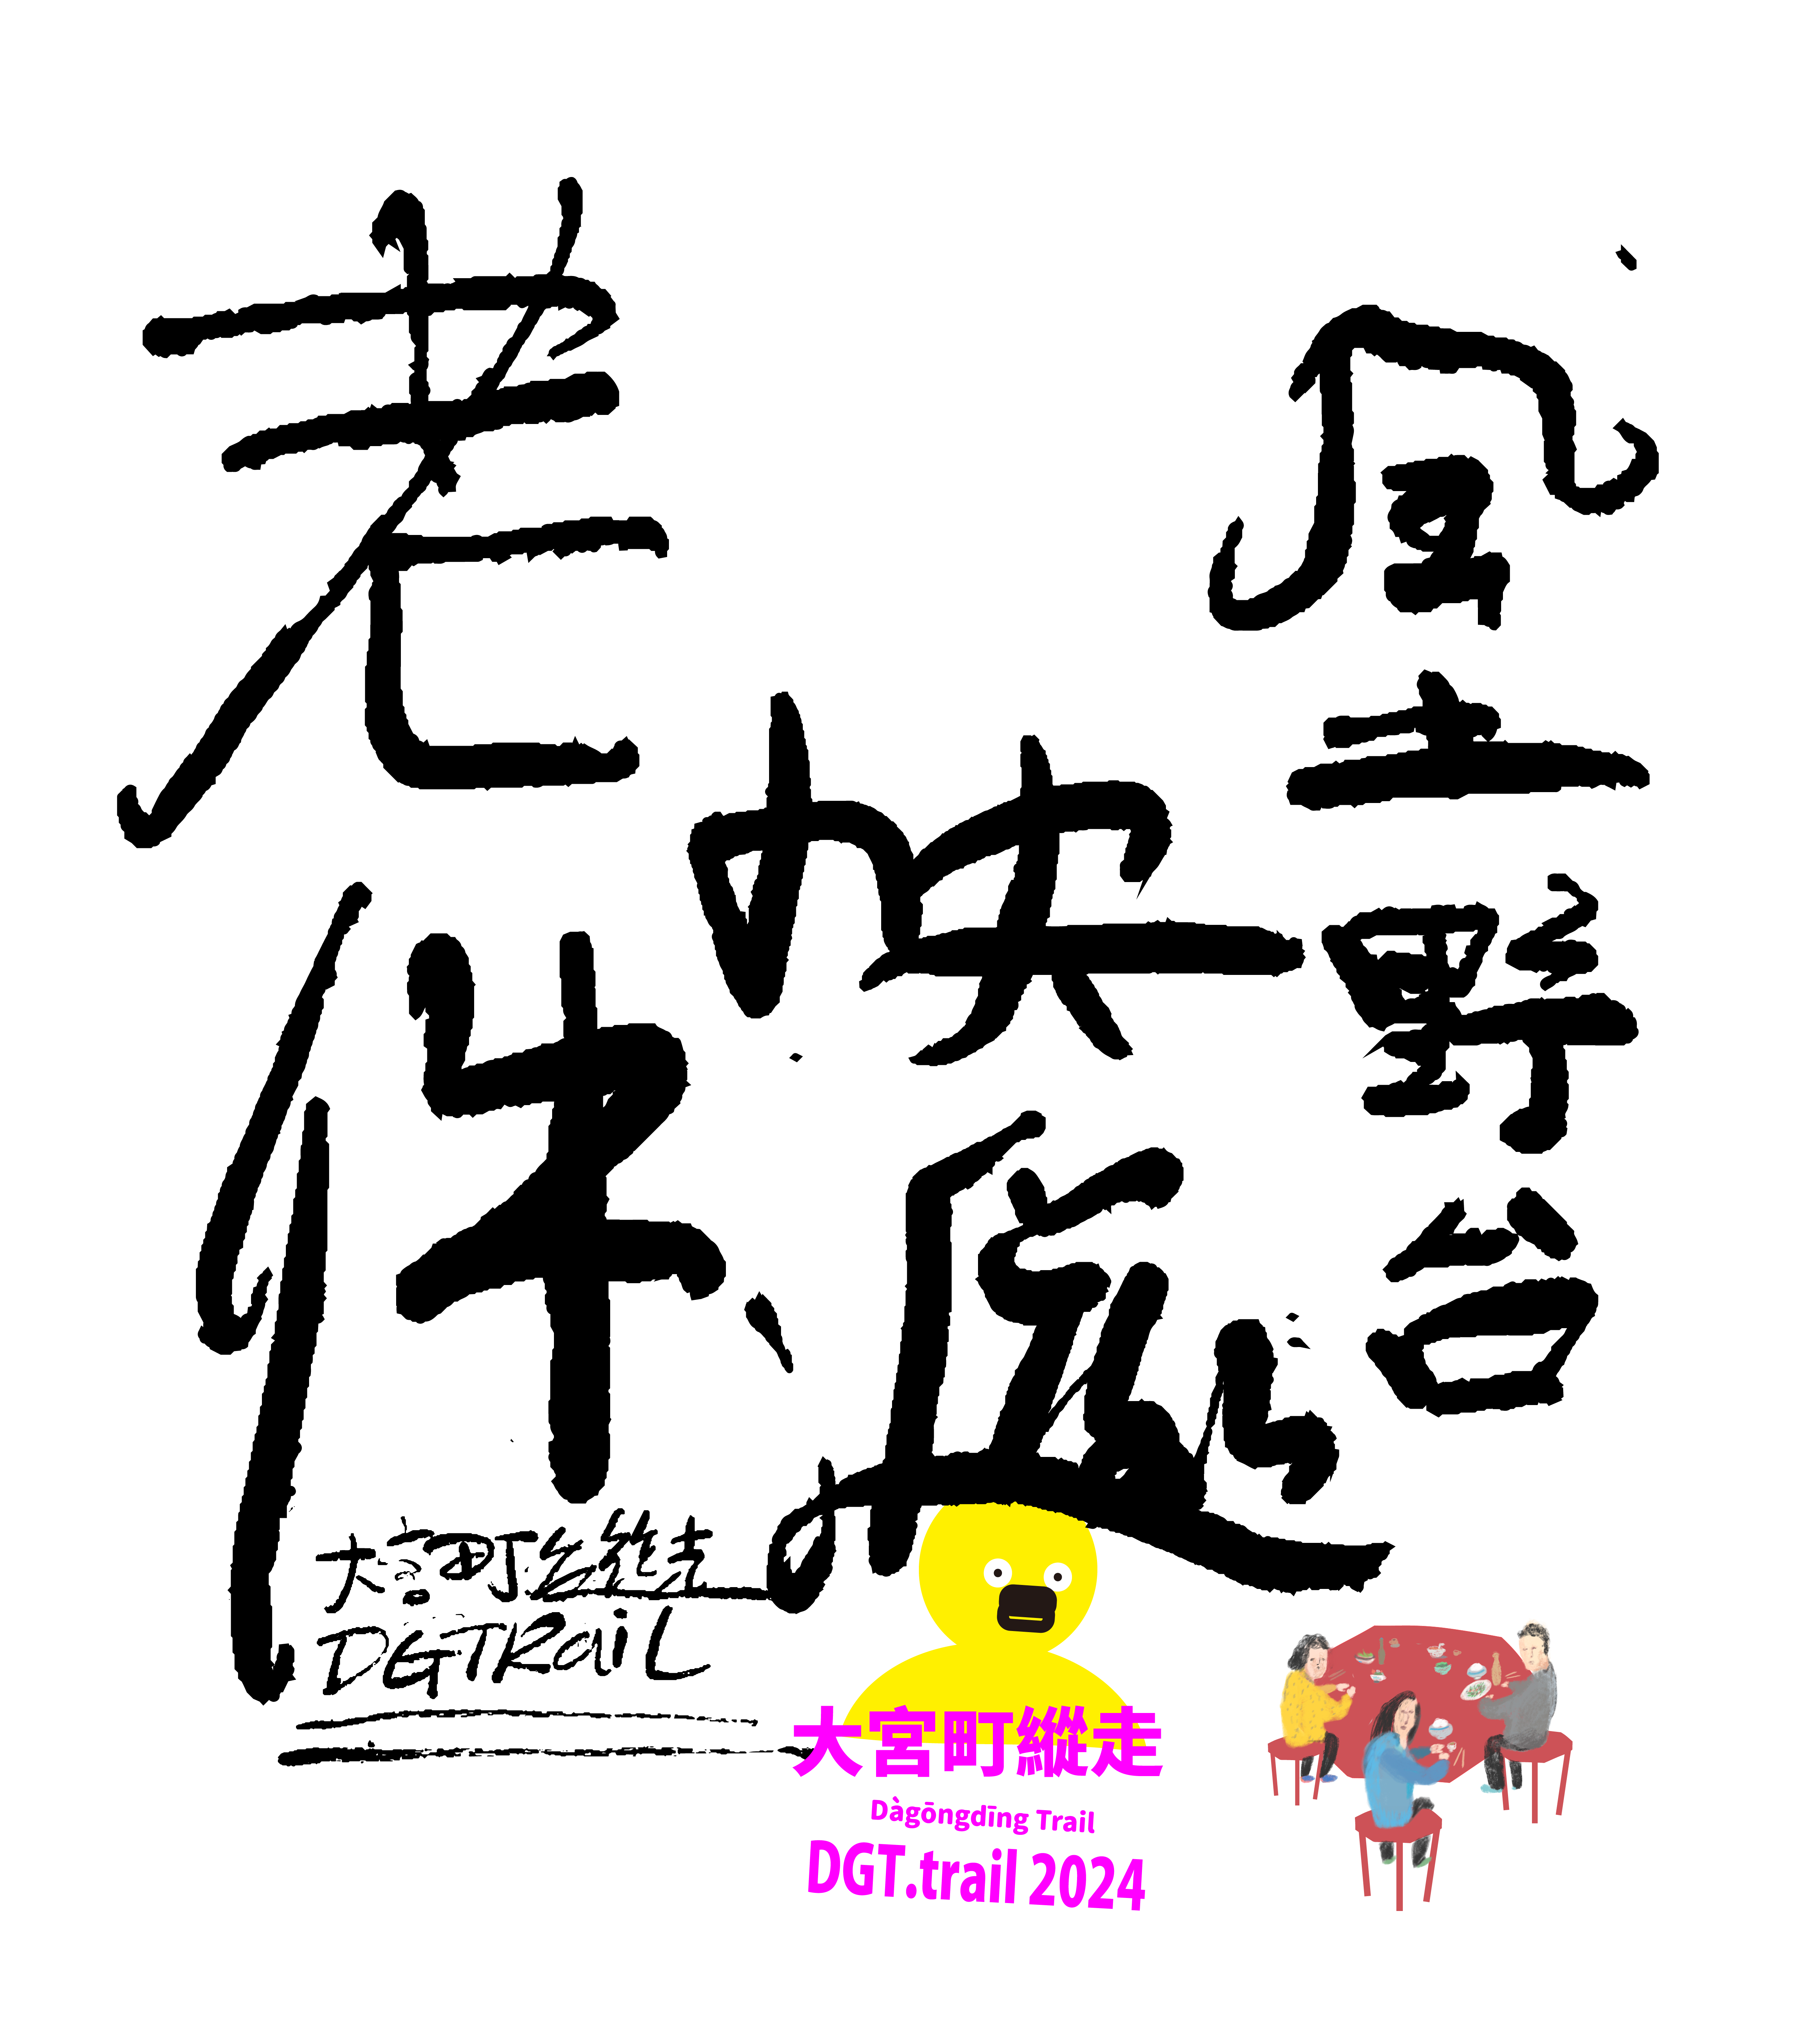 風土野台
老件
大宮町縱走
DGTRaiL
大宮町縱走
Dàgōngdīng Trail
DGT.trail 2024